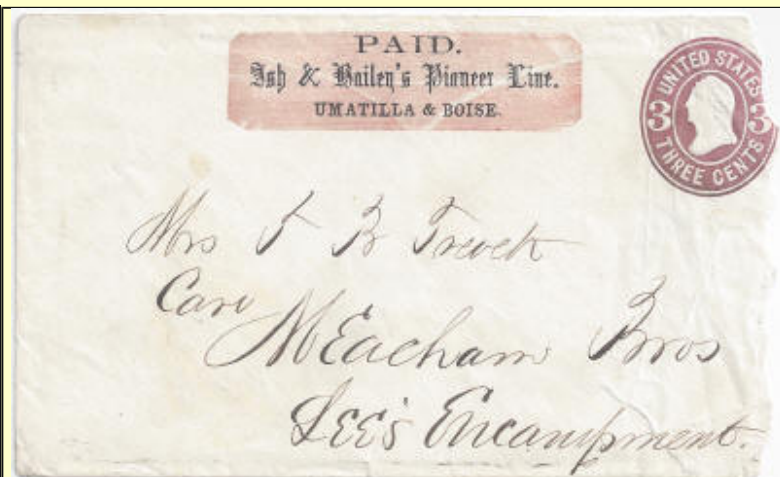 PAID.
Ish & Hailey's Pioneer Line.
UMATILLA & BOISE.
UNITED STATES
3 3
THREE CENTS
Mrs F B
Care
MEacham Bros
LEE's Encampment.